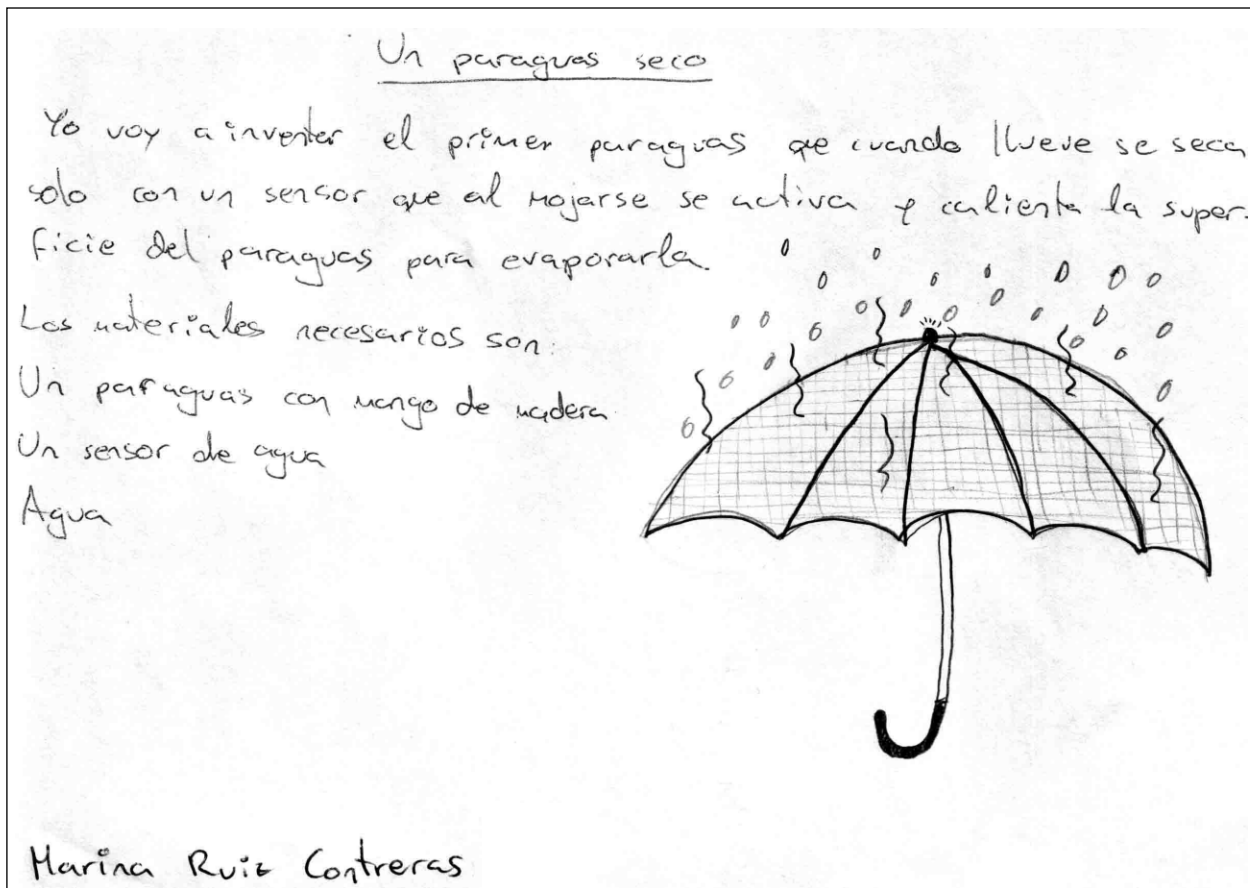 Un paraguas seco
Yo voy a inventar el primer paraguas que cuando llueve se seca
solo con un sensor que al mojarse se activa y calienta la super-
ficie del paraguas para evaporarla.
Los materiales necesarios son:
Un paraguas con mango de madera
Un sensor de agua
Agua
Marina Ruiz Contreras